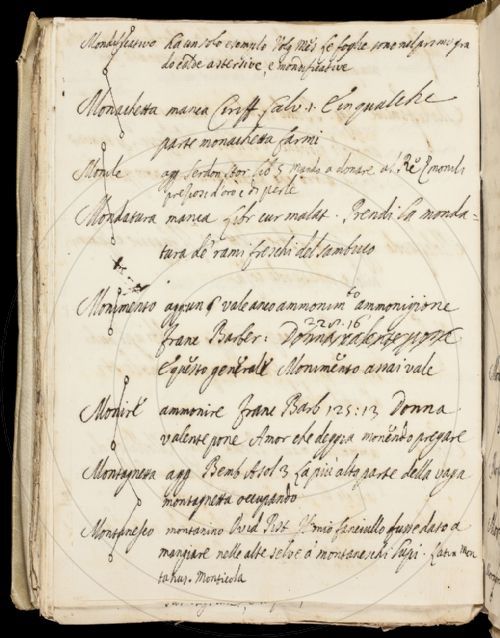 Mondificativo ha un solo esempio Volg Mes Le foglie sono nel primo gra
do calde astersive, e mondificative
Monachetta manca Ciriff Calv. 1. E in qualche
parte monachetta farmi
Monile agg Serdon Stor lib 5 Manda a donare al Re monili
preziosi d'oro e di perle
Mondatura manca libr cur malat. Prendi la monda=
tura de rami freschi del sambuco
Monimento aggiun vale anco ammonimto ammonigione
franc Barber: 321.16 Donna valente pone
E questo generale Monimento assai vale
Monire ammonire franc Barb 125:13 Donna
valente pone Amor che deggia monendo pregare
Montagnetta agg Bemb Asol 3 La più alta parte della vaga
montagnetta occupando
Montanesco montanino Ovid Pist Mio fanciullo fusse dato a
mangiare nelle alte selve a montaneschi lupi. Latin Mon
tanus. Monticola